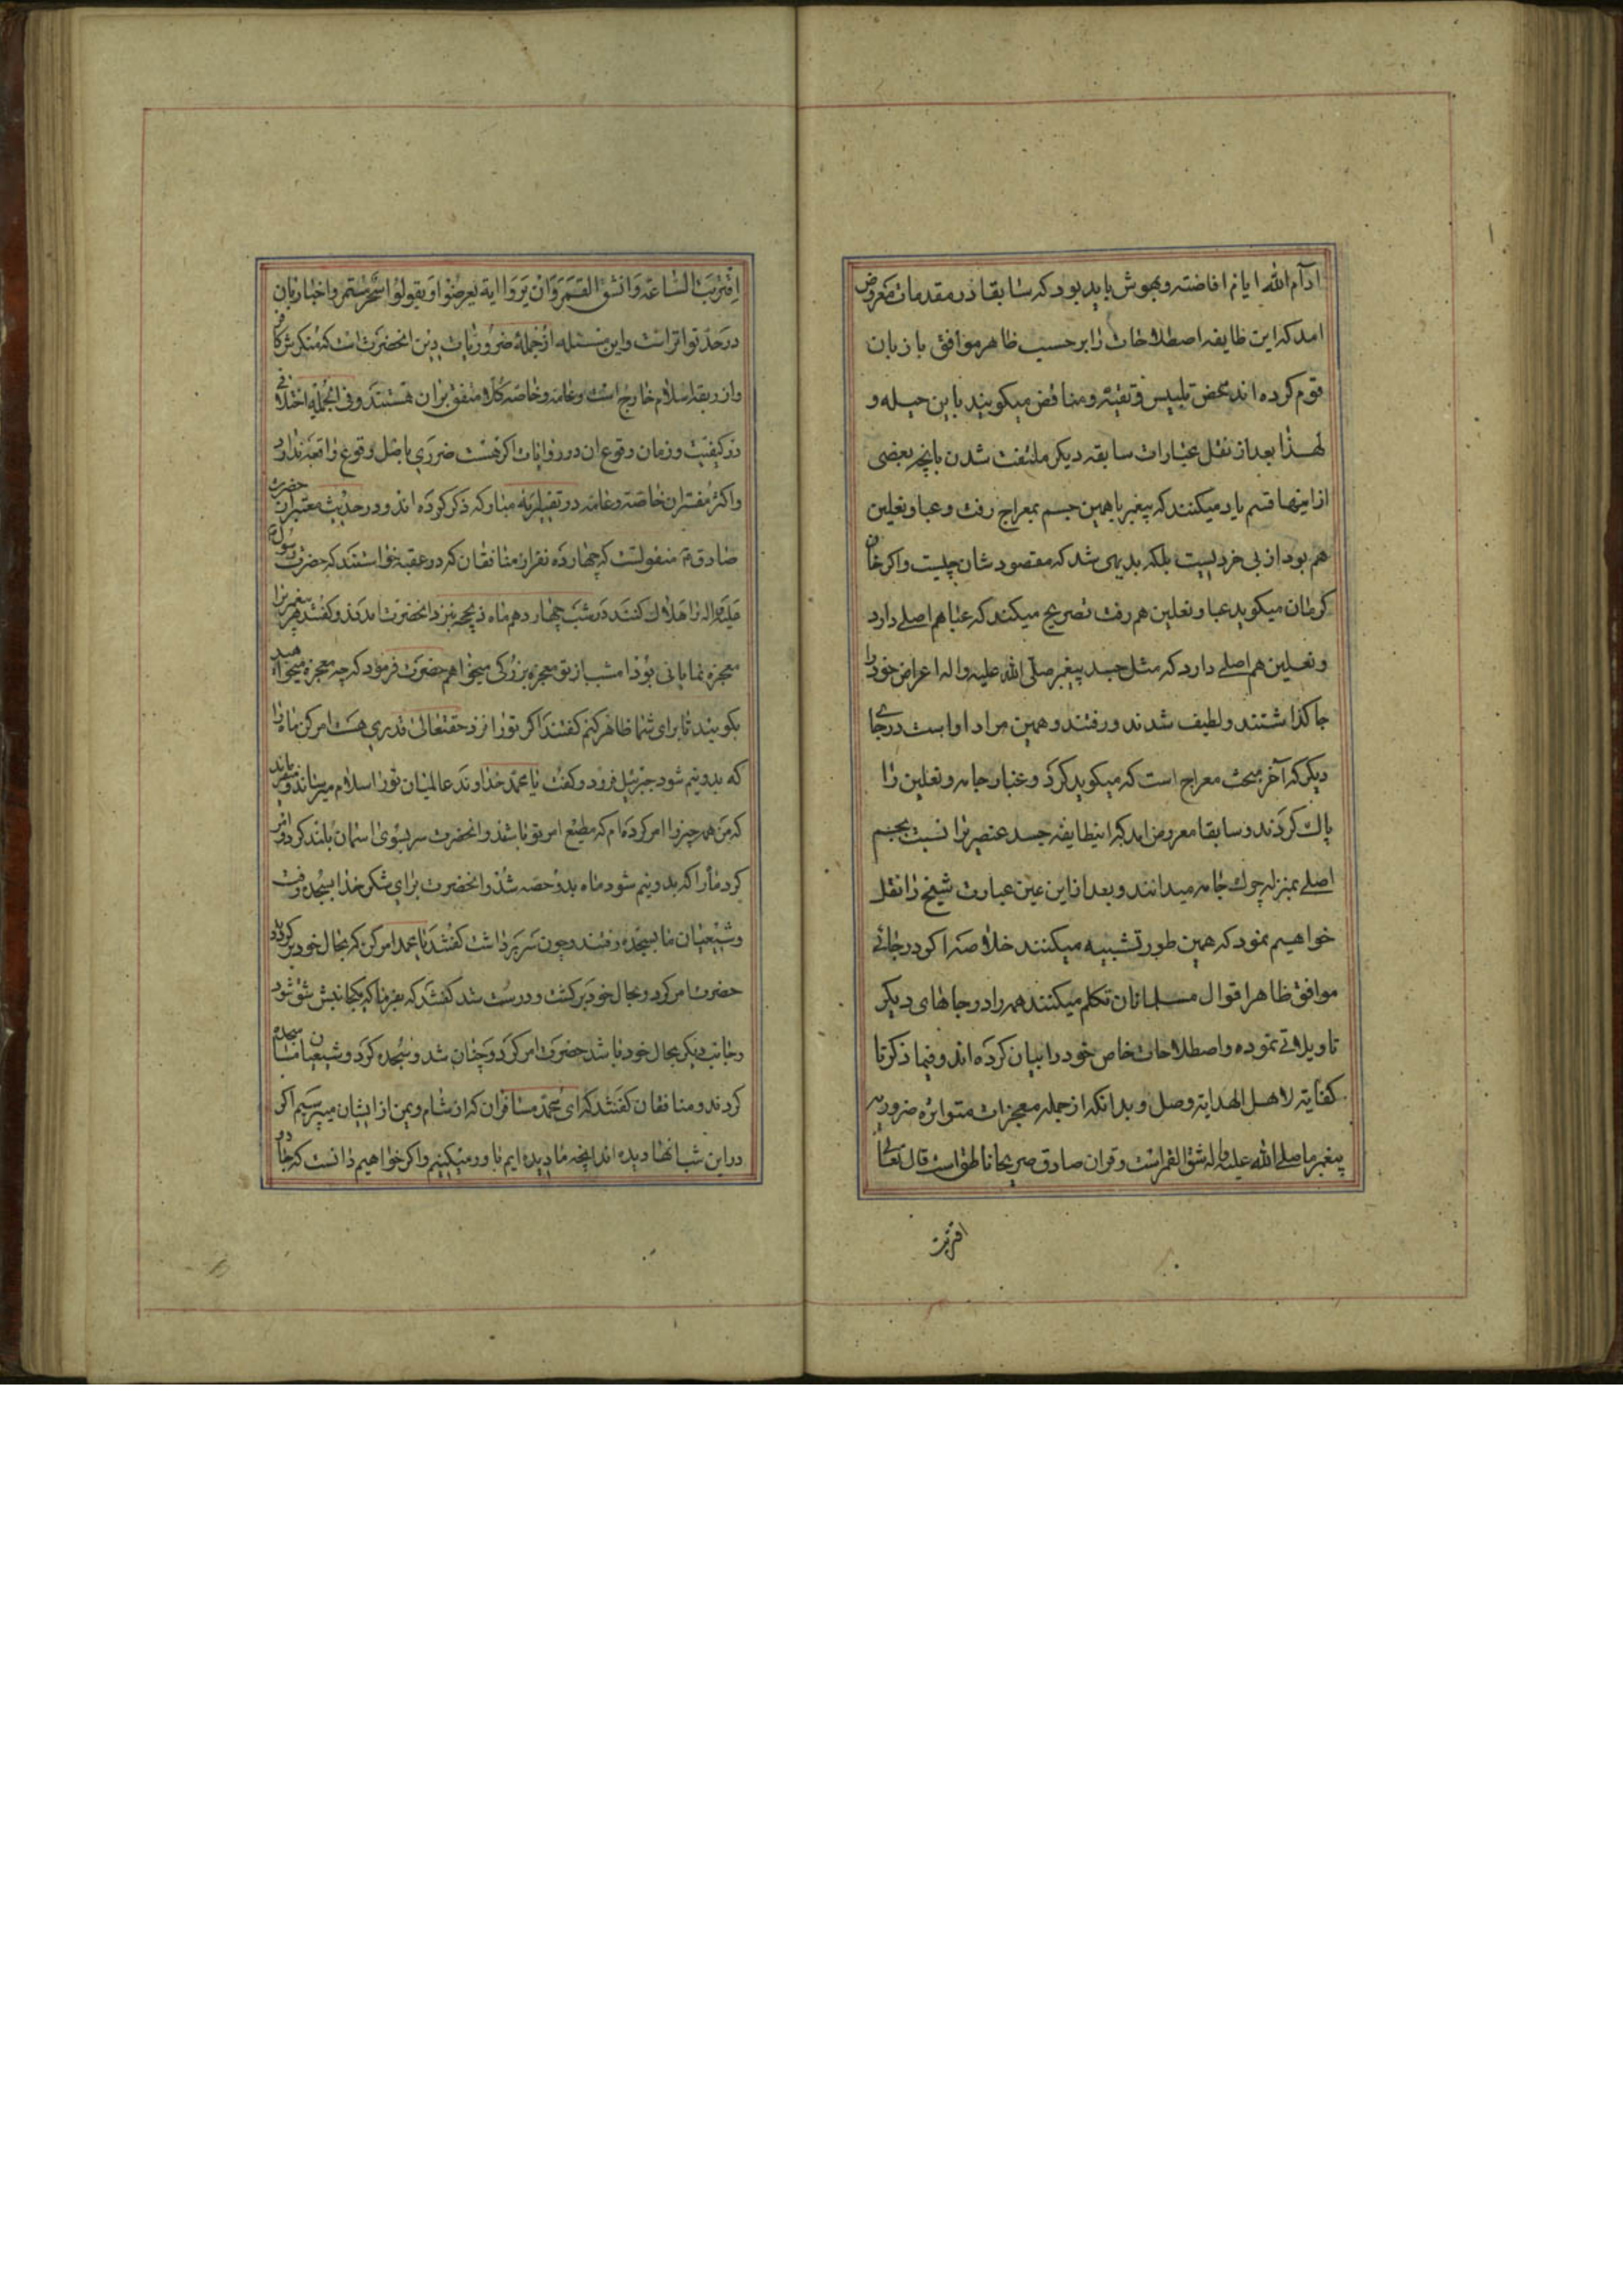 ادام الله ایام افاضته و بهوش باید بود که سابقا در مقدمات معروض
امد که این طایفه اصطلاحات را بر حسب ظاهر موافق با زبان
قوم کرده اند محض تلبیس و تقیه و مناقض میکویند باین حیله و
لهذا بعد از نقل عبارات سابقه دیکر ملتفت شدن بانچه بعضی
از اینها قسم یاد میکنند که پیغمبر با همین جسم بمعراج رفت و عبا و نعلین
هم بود از بی خردیست بلکه بدیهی شد که مقصود شان چیست و اکر خان
کرمان میکوید عبا و نعلین هم رفت تصریح میکند که عبا هم اصلی دارد
و نعلین هم اصلی دارد که مثل جسد پیغمبر صلی الله علیه و اله اعراض خود را
جا کذاشتند و لطیف شدند و رفتند و همین مراد اوست در جای
دیکر که آخر مبحث معراج است که میکوید کرد و غبار جامه و نعلین را
پاک کردند و سابقا معروض امد که اینطایفه جسد عنصری را نسبت بجسم
اصلی بمنزله چرک جامه میدانند و بعد از این عین عبارت شیخ را نقل
خواهیم نمود که همین طور تشبیه میکنند خلاصه اکر در جائی
موافق ظاهر اقوال مسلمانان تکلم میکنند همه را در جاهای دیکر
تاویلاتی نموده و اصطلاحات خاص خود را بیان کرده اند و فیما ذکرنا
کفایة لاهل الهدایة وصل و بدانکه از جمله معجزات متواتره ضروریه
پیغمبر ما صلی الله علیه و اله شق القمر است و قران صادق صریحا ناطق است قال تعالی
اقتربت
اِقتَرَبَتِ السّاعَة وَانشقَّ القَمَر وَاِن یَرَوا ایة یُعرِضوا وَیقولوا سِحرٌ مُستَمِر و اخبار بان
در حد تواتر است و این مسئله از جمله ضروریات دین انحضرت است که منکرش کافر
و از ربقه اسلام خارج است و عامه و خاصه کلا متفق بران هستند و فی الجمله اختلافی
در کیفیت و زمان وقوع ان در روایات اکر هست ضرری باصل وقوع واقعه ندارد
و اکثر مفسران خاصه و عامه در تفسیر ایه مبارکه ذکر کرده اند و در حدیث معتبر از حضرت
صادق ع منقولست که چهارده نفر از منافقان که در عقبه خواستند که حضرت رسول
صلی الله علیه و اله را هلاک کنند در شب چهاردهم ماه ذیحجه بنزد انحضرت امدند و کفتند هر پیغمبری را
معجزه نمایانی بود امشب از تو معجزه بزرکی میخواهیم حضرت فرمود که چه معجزه میخواهید
بکویید تا برای شما ظاهر کنم کفتند اکر تو را نزد حقتعالی قدری هست امر کن ماه را
که بدو نیم شود جبرئیل فرود و کفت یا محمد خداوند عالمیان تو را سلام میرساند و میفرماید
که من همه چیز را امر کرده ام که مطیع امر تو باشد و انحضرت سر بسوی اسمان بلند کرد و امر
کرد ماه را که بدو نیم شود ماه بدو حصه شد و انحضرت برای شکر خدا بسجده رفت
و شیعیان ما بسجده رفتند و چون سر برداشت کفتند یا محمد امر کن که بحال خود برکردد
حضرت امر کرد و بحال خود برکشت و درست شد کفتند که بفرما که یکجانبش شق شود
و جانب دیکر بحال خود باشد حضرت امر کرد و چنان شد و سجده کرد و شیعیان ما سجده
کردند و منافقان کفتند که ای محمد مسافران که از شام و یمن از ایشان میپرسیم اکر
در این شب انها دیده اند انچه ما دیده ایم باور میکنیم و اکر خواهیم دانست که جادو